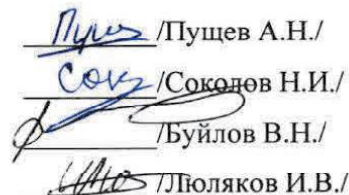 /Пущев А.Н./
/Соколов Н.И./
/Буйлов В.Н./
/Люляков И.В./